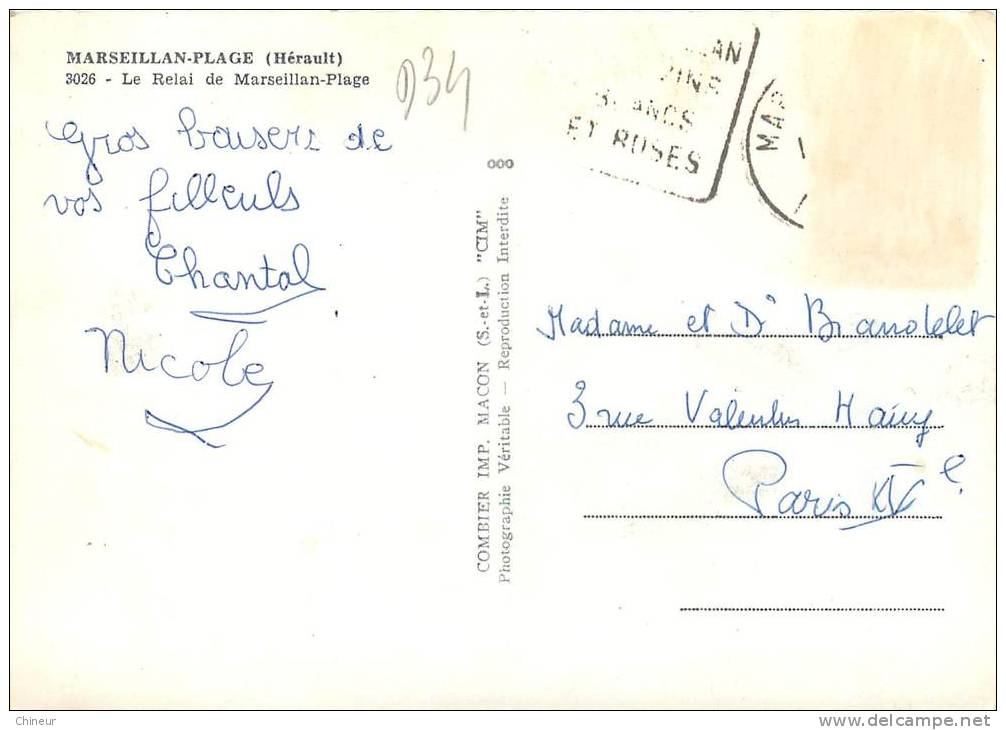 MARSEILLAN-PLAGE (Hérault)
3026 - Le Relai de Marseillan-Plage
D34
Gros baisers de
vos filleuls
Chantal
Nicole
COMBIER IMP. MACON (S.-et-L.) "CIM"
Photographie Véritable — Reproduction Interdite
AN
VINS
BLANCS
ET ROSES
MAR
Madame et Dr Brandelet
3 rue Valentin Haüy
Paris XVe
Chineur
delcampe.net